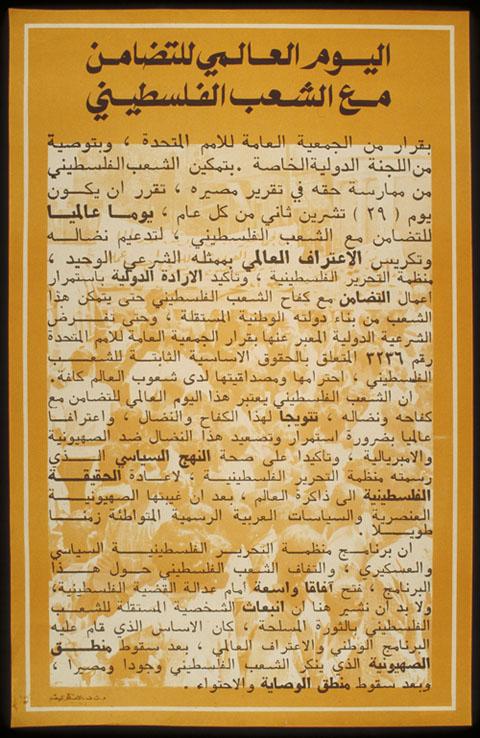 اليوم العالمي للتضامن
مع الشعب الفلسطيني
بقرار من الجمعية العامة للامم المتحدة ، وبتوصية
من اللجنة الدولية الخاصة . بتمكين الشعب الفلسطيني
من ممارسة حقه في تقرير مصيره ، تقرر ان يكون
يوم ( ٢٩ ) تشرين ثاني من كل عام ، يوما عالميا
للتضامن مع الشعب الفلسطيني ، لتدعيم نضاله
وتكريس الإعتراف العالمي بممثله الشرعي الوحيد ،
منظمة التحرير الفلسطينية ، وتأكيد الارادة الدولية باستمرار
اعمال التضامن مع كفاح الشعب الفلسطيني حتى يتمكن هذا
الشعب من بناء دولته الوطنية المستقلة ، وحتى تفرض
الشرعية الدولية المعبر عنها بقرار الجمعية العامة للامم المتحدة
رقم ٣٢٣٦ المتعلق بالحقوق الاساسية الثابتة للشعب
الفلسطيني ، احترامها ومصداقيتها لدى شعوب العالم كافة.
ان الشعب الفلسطيني يعتبر هذا اليوم العالمي للتضامن مع
كفاحه ونضاله ، تتويجا لهذا الكفاح والنضال ، واعترافا
عالميا بضرورة استمرار وتصعيد هذا النضال ضد الصهيونية
والامبريالية ، وتأكيدا على صحة النهج السياسي الذي
رسمته منظمة التحرير الفلسطينية ، لاعادة الحقيقة
الفلسطينية الى ذاكرة العالم ، بعد ان غيبتها الصهيونية
العنصرية والسياسات العربية الرسمية المتواطئة زمنا
طويلا .
ان برنامج منظمة التحرير الفلسطينية السياسي
والعسكري ، والتفاف الشعب الفلسطيني حول هذا
البرنامج ، فتح آفاقا واسعة أمام عدالة القضية الفلسطينية،
ولا بد أن نشير هنا ان انبعاث الشخصية المستقلة للشعب
الفلسطيني بالثورة المسلحة ، كان الاساس الذي قام عليه
البرنامج الوطني والاعتراف العالمي ، بعد سقوط منطق
الصهيونية الذي ينكر الشعب الفلسطيني وجودا ومصيرا ،
وبعد سقوط منطق الوصاية والاحتواء .